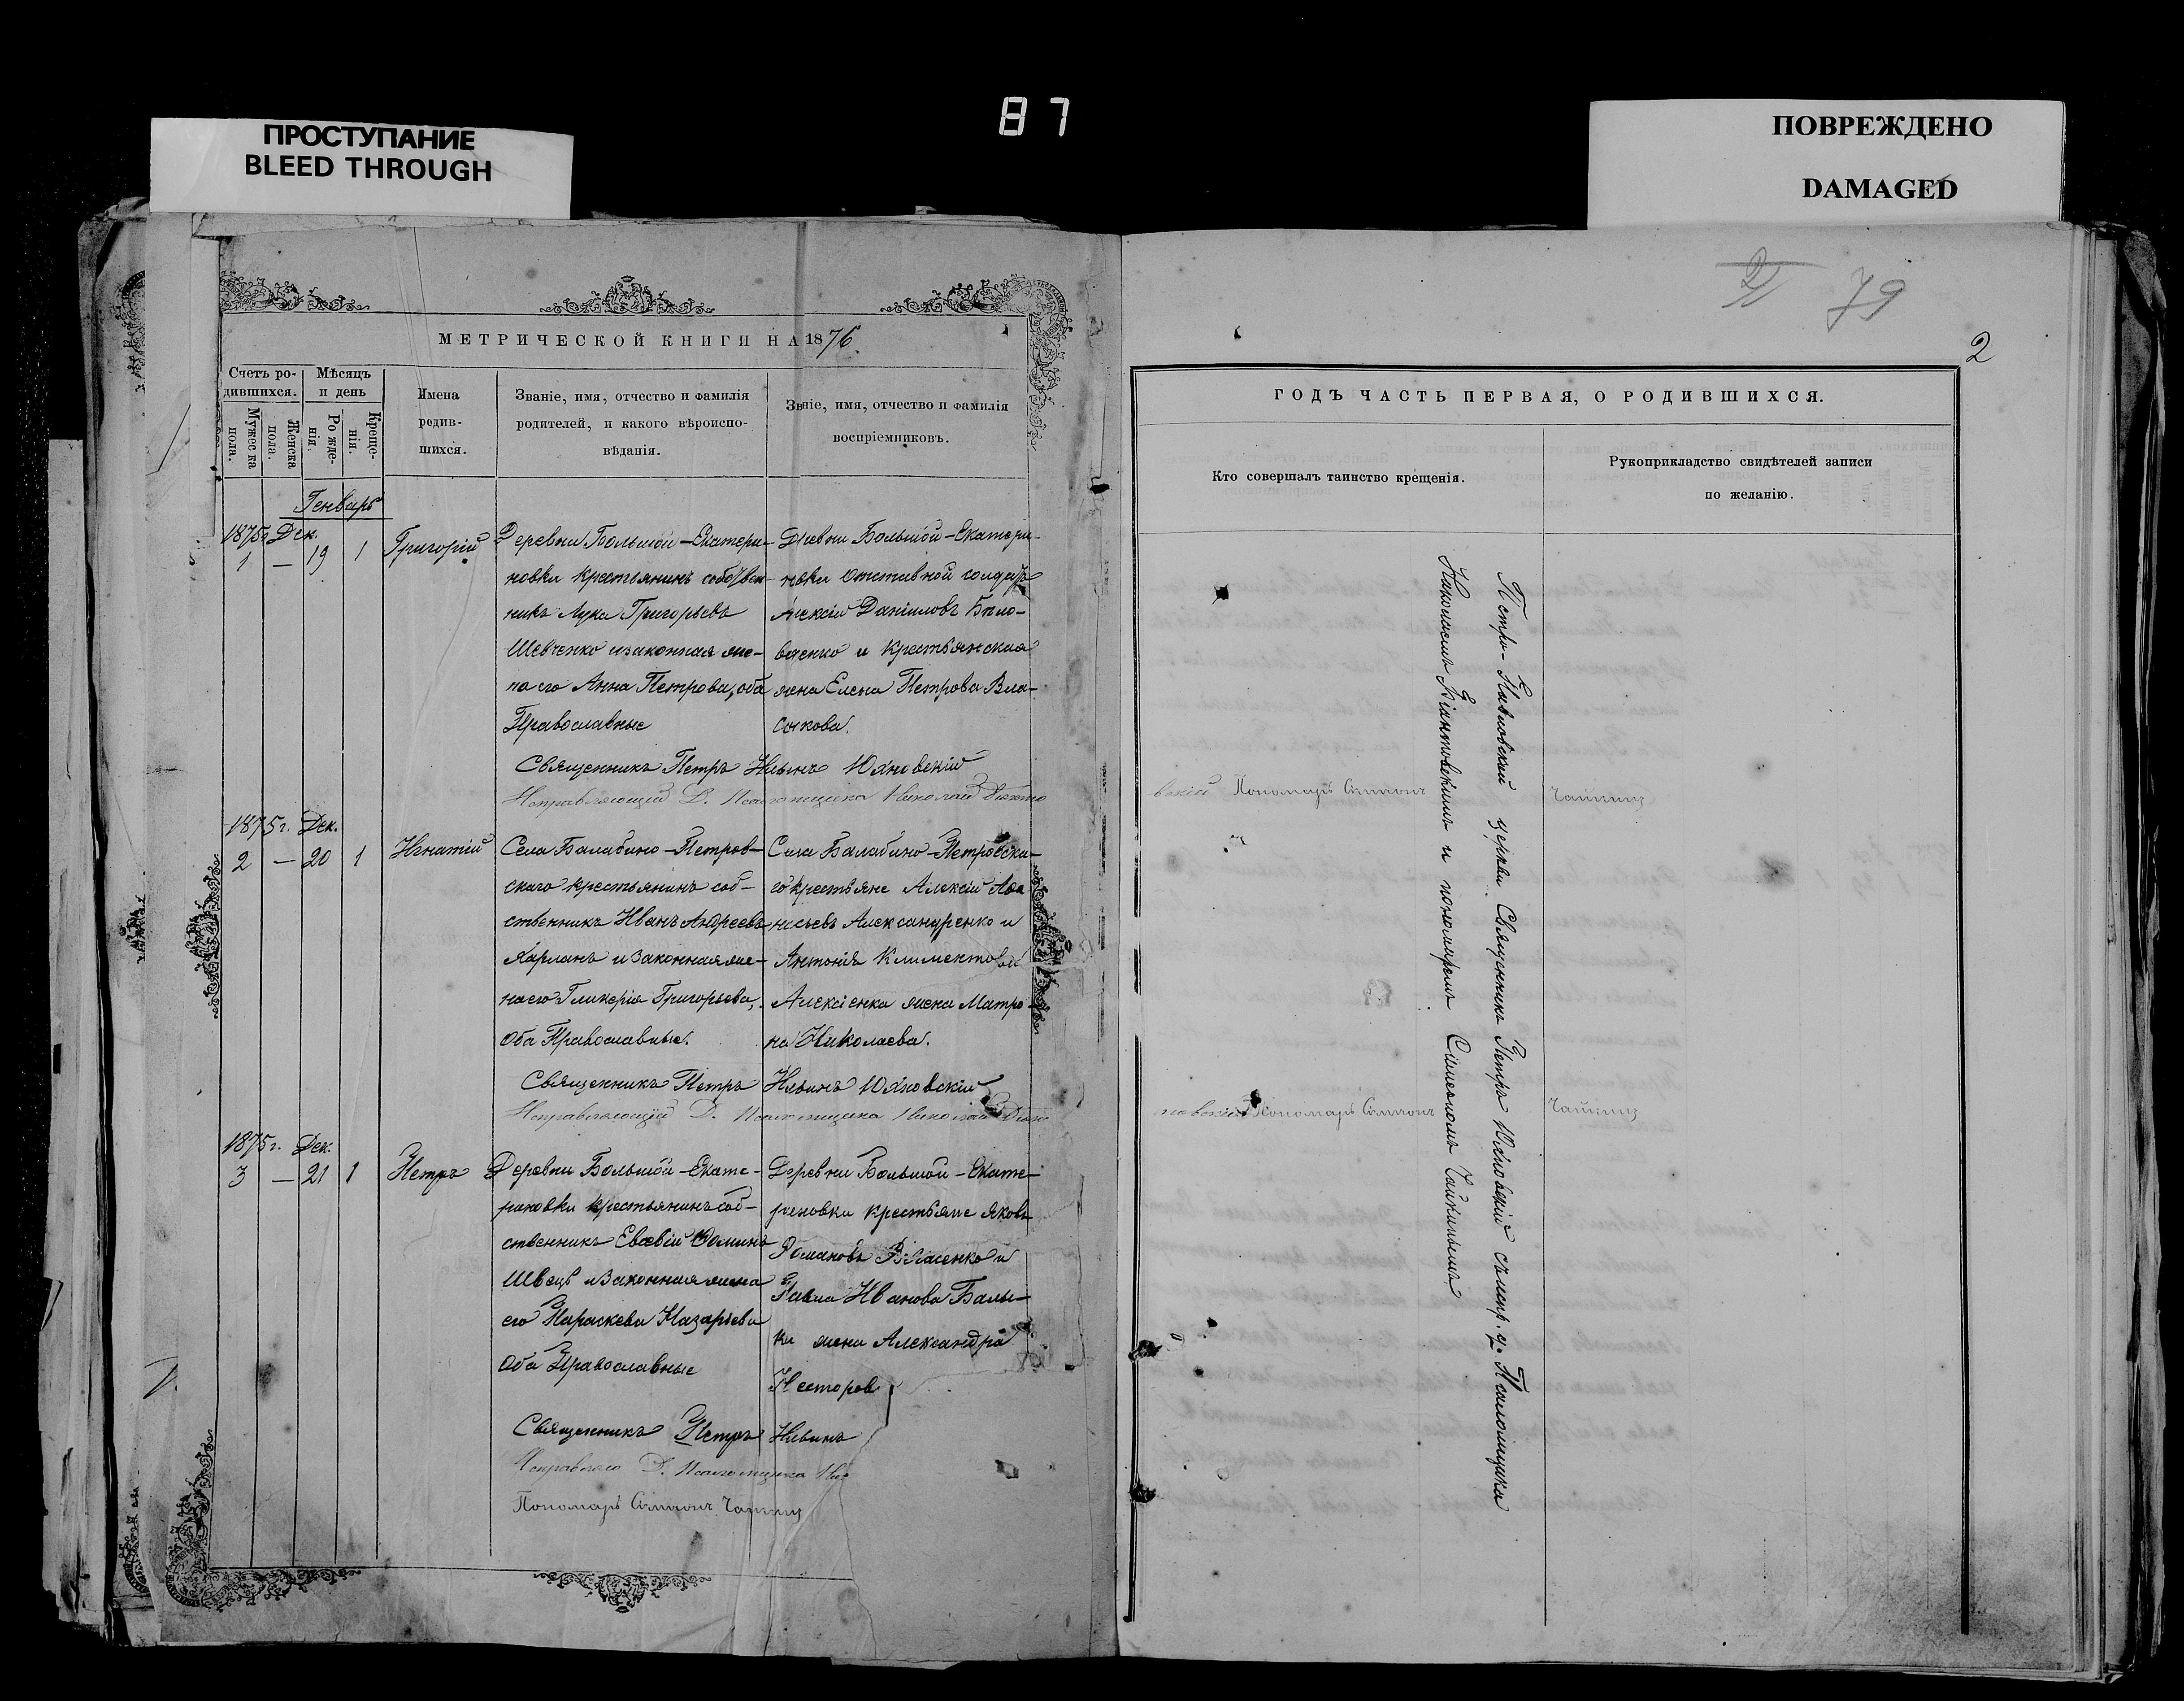 87
ПРОСТУПАНИЕ
BLEED THROUGH
ПОВРЕЖДЕНО
DAMAGED
79
2
МЕТРИЧЕСКОЙ КНИГИ НА 1876
Счетъ родившихся.
Мужеска пола.
Женска пола.
Мѣсяцъ и день
Рожденія.
Крещенія.
Имена родившихся.
Званіе, имя, отчество и фамилія
родителей, и какого вѣроиспо-
вѣданія.
Званіе, имя, отчество и фамилія
воспріемниковъ.
Генварь
1875 Дек.
1 — 19 1 Григорій
Деревни Большой-Екатери-
новки крестьянинъ собствен-
никъ Лука Григорьевъ
Шевченко и законная же-
на его Анна Петрова, оба
Православные
Деревни Большой-Екатери-
новки отставной солдатъ
Алексій Даніиловъ Бѣло-
и крестьянская
жена Елена Петрова Вла-
сенкова.
Священникъ Петръ Ильинъ Юхновскій
Исправляющій д. Псаломщика Николай
Пономарь Симеонъ Чайкинъ
1875 г. Дек.
2 — 20 1 Игнатій
Села Балабино-Петров-
скаго крестьянинъ соб-
ственникъ Иванъ Андреевъ
Харланъ и законная же-
на его Гликерія Григорьева,
оба Православные.
Села Балабино-Петровска-
го крестьяне Алексій Афа
насьевъ Александренко и
Антонія Климентова
Алексіенка жена Матро-
на Николаева.
Священникъ Петръ Ильинъ Юхновскій
Исправляющій д. Псаломщика Николай
Пономарь Симеонъ Чайкинъ
1875 г. Дек.
3 — 21 1 Петръ
Деревни Большой-Екате-
риновки крестьянинъ соб-
ственникъ Евсевій Фоминъ
Швецъ и законная жена
его Параскева Назарьева
Оба Православные
Деревни Большой-Екате-
риновки крестьяне Яковъ
Романовъ Власенко и
Павла Иванова Балы-
ки жена Александра
Несторов
Священникъ Петръ Ильинъ
д. Псаломщика Ни
Пономарь Симеонъ Чайкинъ
ГОДЪ ЧАСТЬ ПЕРВАЯ, О РОДИВШИХСЯ.
Кто совершалъ таинство крещенія.
Рукоприкладство свидѣтелей записи
по желанію.
Петро-Павловской церкви Священникъ Петръ Юхновскій съ испр. д. Псаломщика
Николаемъ и пономаремъ Симеономъ Чайкинымъ